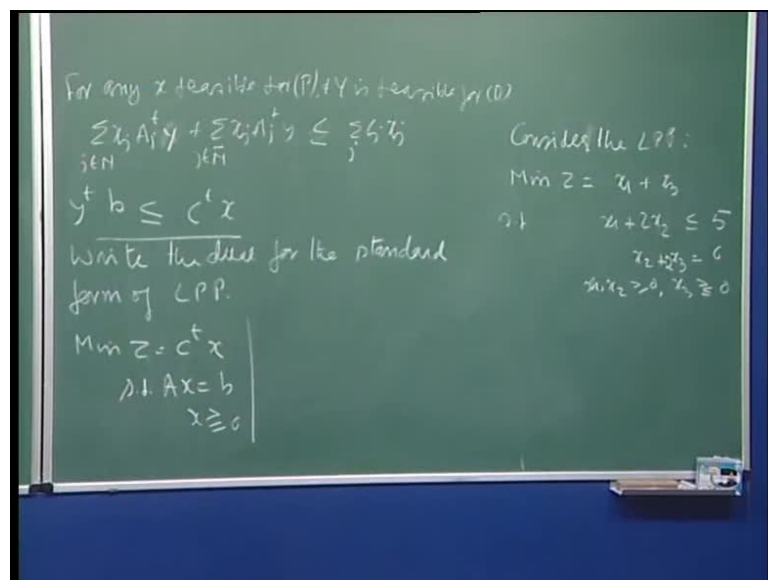 For any x feasible for (P) & Y is feasible for (D)
∑ xⱼ Aⱼᵗ y + ∑ xⱼ Aⱼᵗ y ≤ ∑ cⱼ xⱼ
j∈N j∈N̄ j
yᵗ b ≤ cᵗ x
Write the dual for the standard
form of LPP.
Min Z = cᵗ x
s.t. Ax = b
x ≧ 0
Consider the LPP:
Min Z = x₁ + x₃
s.t x₁ + 2x₂ ≤ 5
x₂ + 2x₃ = 6
x₁, x₂ ≥ 0, x₃ ≧ 0